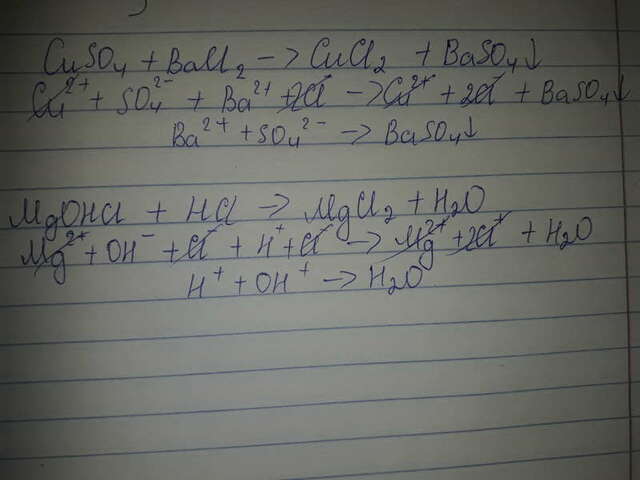 CuSO₄ + BaCl₂ –> CuCl₂ + BaSO₄↓
Cu²⁺ + SO₄²⁻ + Ba²⁺ + 2Cl⁻ –> Cu²⁺ + 2Cl⁻ + BaSO₄↓
Ba²⁺ + SO₄²⁻ –> BaSO₄↓
MgOHCl + HCl –> MgCl₂ + H₂O
Mg²⁺ + OH⁻ + Cl⁻ + H⁺ + Cl⁻ –> Mg²⁺ + 2Cl⁺ + H₂O
H⁺ + OH⁺ –> H₂O